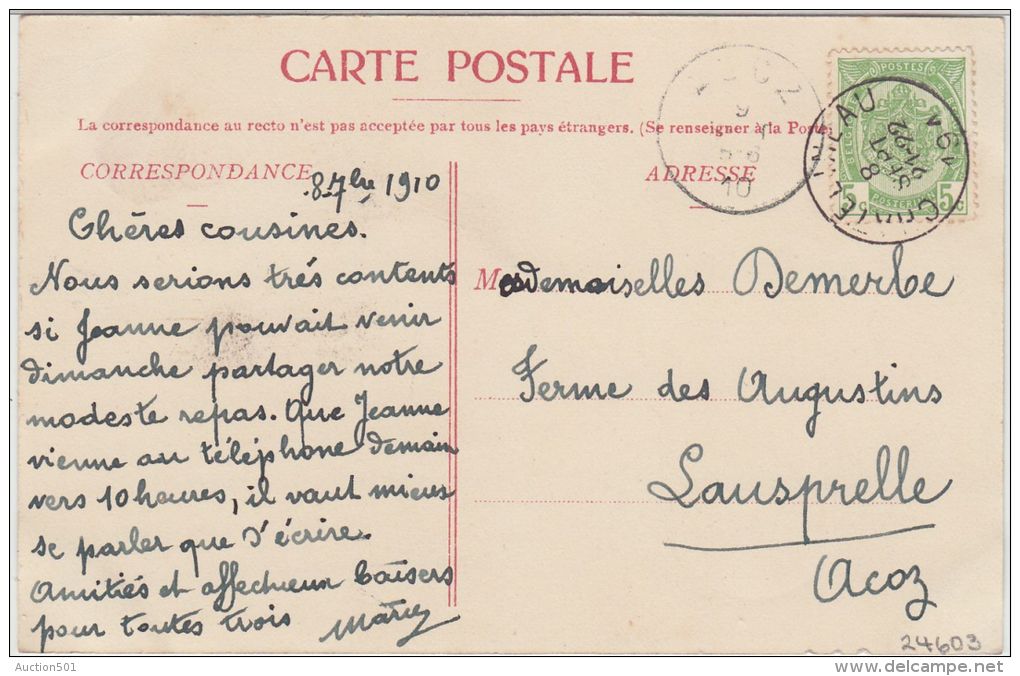 CARTE POSTALE
La correspondance au recto n'est pas acceptée par tous les pays étrangers. (Se renseigner à la Poste)
CORRESPONDANCE
ADRESSE
8-7bre 1910
Chères cousines.
Nous serions trés contents
si Jeanne pouvait venir
dimanche partager notre
modeste repas. Que Jeanne
vienne au téléphone demain
vers 10 heures, il vaut mieux
se parler que s'écrire.
Amitiés et affectueux baisers
pour toutes trois
Mesdemoiselles Demerbe
Ferme des Augustins
Lausprelle
Acoz
POSTES
5c 5c
ACOZ
9
10
24603
Auction501
www.delcampe.net